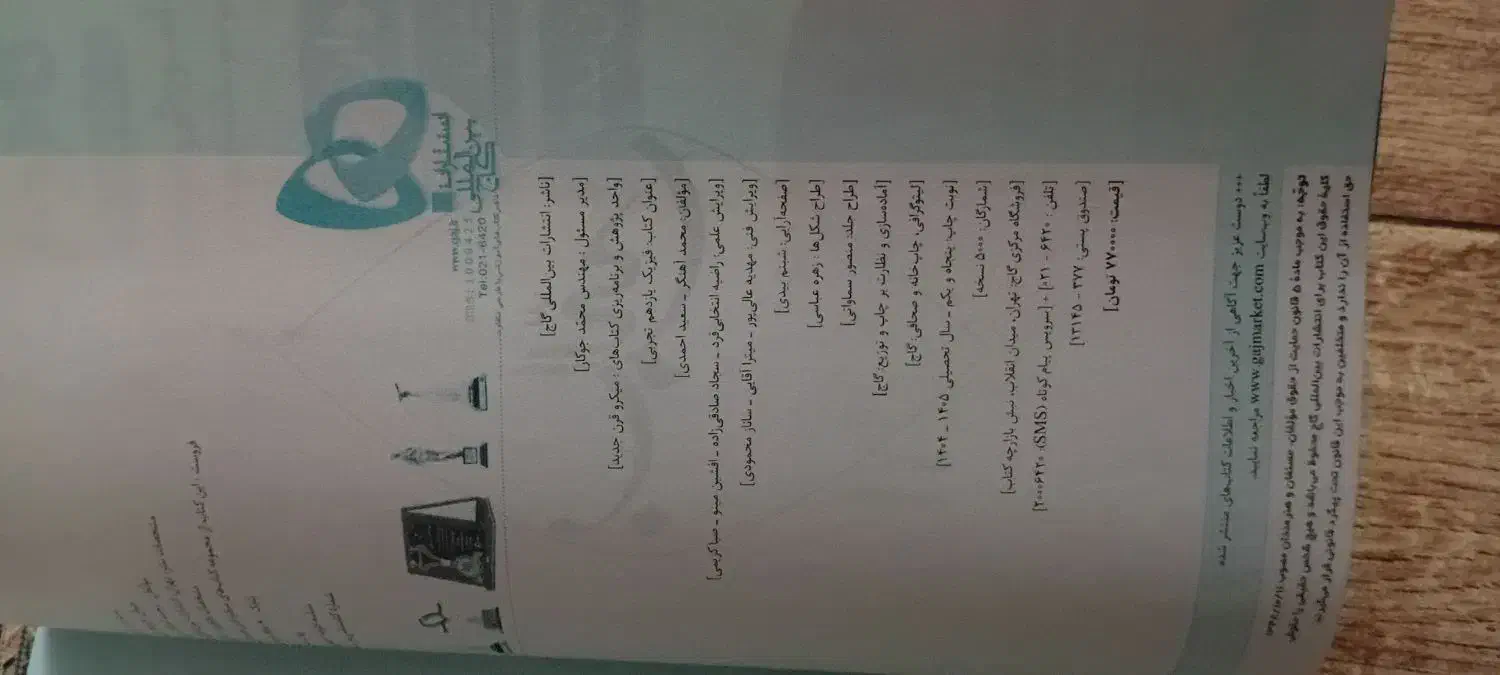 انتشارات
بین‌المللی
گاج
www.gaj.ir
Tel:021-6420
[ناشر: انتشارات بین‌المللی گاج]
[مدیر مسئول: مهندس محمد جوکار]
[واحد پژوهش و برنامه‌ریزی کتاب‌های: میکرو قرن جدید]
[عنوان کتاب: فیزیک یازدهم تجربی]
[مؤلفان: محمد آهنگر ـ سعید احمدی]
[ویرایش علمی: راضیه انتخابی‌فرد ـ سجاد صادقی‌زاده ـ افشین مینو ـ صبا کریمی]
[ویرایش فنی: مهدیه عالی‌پور ـ میترا آقایی ـ ساناز محمودی]
[صفحه‌آرایی: شبنم بیدی]
[طراح شکل‌ها: زهره عباسی]
[طراح جلد: منصور سماواتی]
[آماده‌سازی و نظارت بر چاپ و توزیع: گاج]
[لیتوگرافی، چاپ‌خانه و صحافی: گاج]
[نوبت چاپ: پنجاه و یکم ـ سال تحصیلی ۱۴۰۵ ـ ۱۴۰۴]
[شمارگان: ۵۰۰۰ نسخه]
[فروشگاه مرکزی گاج: تهران، میدان انقلاب، نبش بازارچه کتاب]
[تلفن: ۶۴۲۰ - ۰۲۱] + [سرویس پیام کوتاه (SMS): ۲۰۰۰۶۴۲۰]
[صندوق پستی: ۳۷۷ - ۱۳۱۴۵]
[قیمت: ۷۷۰۰۰۰ تومان]
دوست عزیز جهت آگاهی از آخرین اخبار و اطلاعات کتاب‌های منتشر شده
لطفاً به وب‌سایت www.gajmarket.com مراجعه نمایید.
توجه: به موجب مادهٔ ۵ قانون حمایت از حقوق مؤلفان، مصنفان و هنرمندان مصوب ۱۳۴۸/۱۰/۱۱
کلیهٔ حقوق این کتاب برای انتشارات بین‌المللی گاج محفوظ می‌باشد و هیچ شخص حقیقی یا حقوقی
حق استفاده از آن را ندارد و متخلفین به موجب این قانون تحت پیگرد قانونی قرار می‌گیرند.